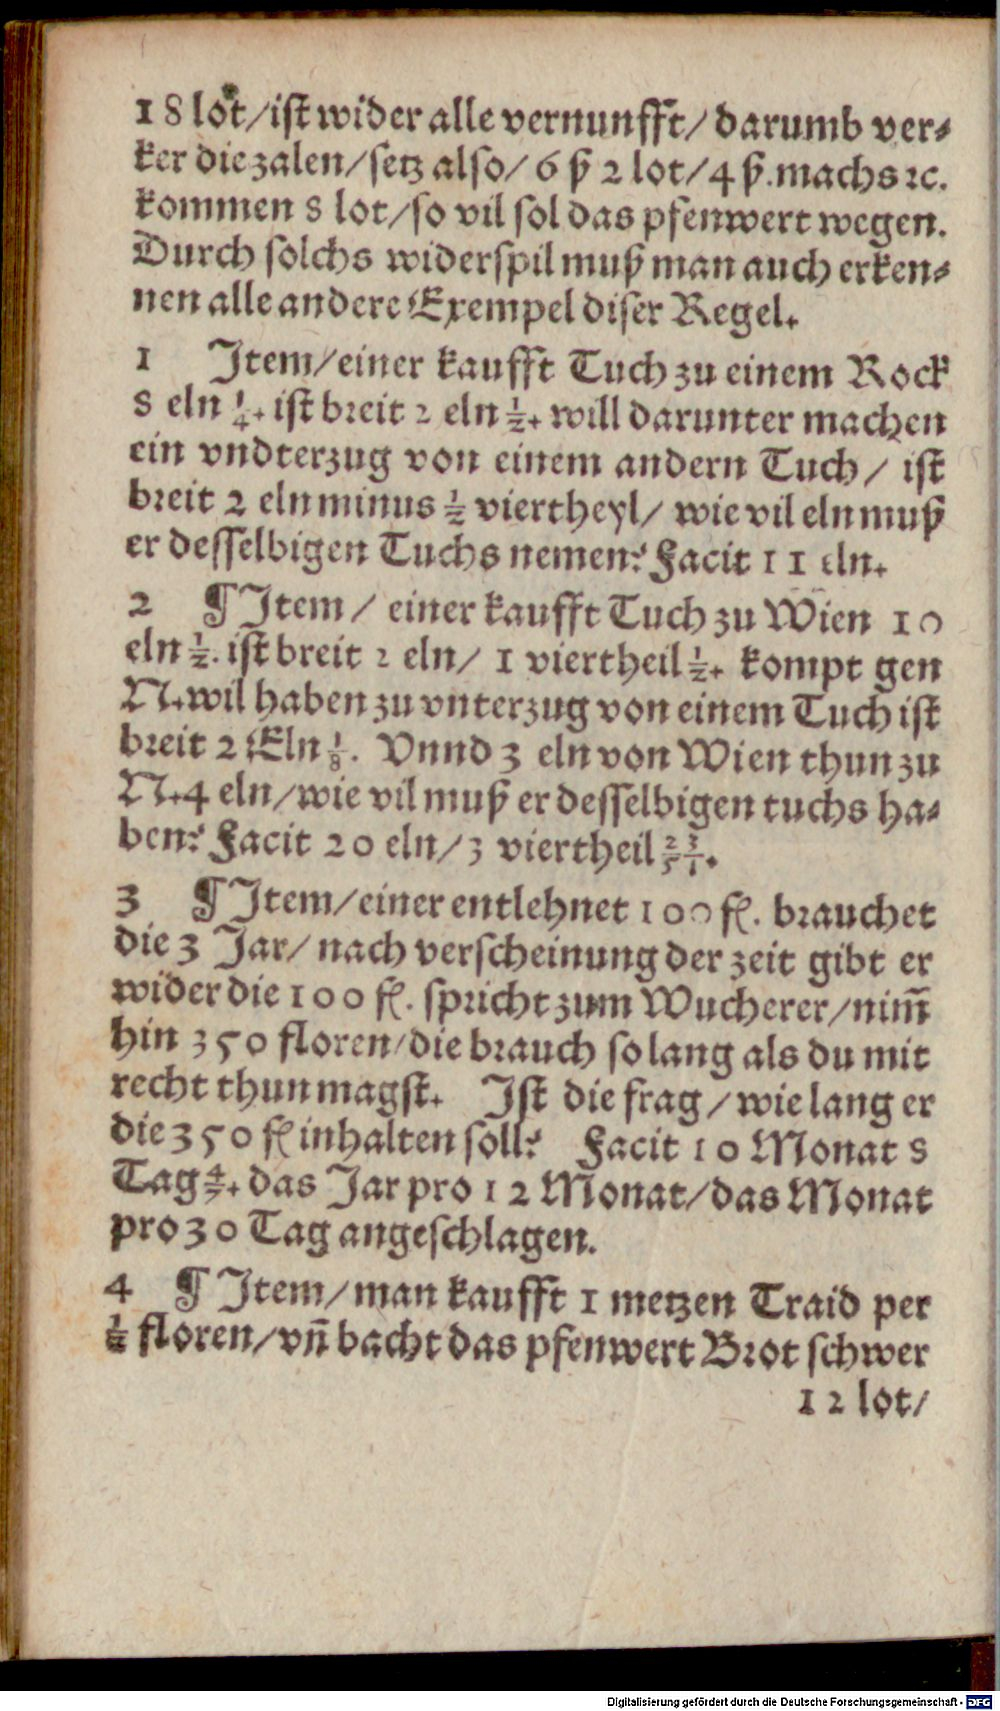 18 lot/ist wider alle vernunfft/ darumb ver⸗
ker die zalen/setz also/ 6 ß 2 lot/4 ß.machs ꝛc.
kommen 8 lot/so vil sol das pfenwert wegen.
Durch solchs widerspil muß man auch erken⸗
nen alle andere Exempel diser Regel.
1 Item/einer kaufft Tuch zu einem Rock
8 eln 1/4. ist breit 2 eln 1/2. will darunter machen
ein vndterzug von einem andern Tuch/ ist
breit 2 eln minus 1/2 viertheyl/ wie vil eln muß
er desselbigen Tuchs nemen? Facit 11 eln.
2 ¶ Item/ einer kaufft Tuch zu Wien 10
eln 1/2. ist breit 2 eln/ 1 viertheil 1/2. kompt gen
N.wil haben zu vnterzug von einem Tuch ist
breit 2 Eln 1/8. Vnnd 3 eln von Wien thun zu
N.4 eln/wie vil muß er desselbigen tuchs ha⸗
ben? Facit 20 eln/3 viertheil 23/51.
3 ¶ Item/einer entlehnet 100 fl. brauchet
die 3 Jar/ nach verscheinung der zeit gibt er
wider die 100 fl. spricht zum Wucherer/nim̄
hin 350 floren/die brauch so lang als du mit
recht thun magst. Ist die frag/wie lang er
die 350 fl inhalten soll? Facit 10 Monat 8
Tag 4/7. das Jar pro 12 Monat/das Monat
pro 30 Tag angeschlagen.
4 ¶ Item/man kaufft 1 metzen Traid per
1/2 floren/vn̄ bacht das pfenwert Brot schwer
12 lot/
Digitalisierung gefördert durch die Deutsche Forschungsgemeinschaft - DFG